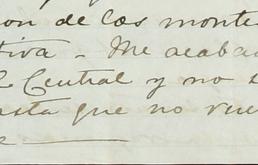 on de los monte
tiva - Me acaba
Central y no
asta que no vue